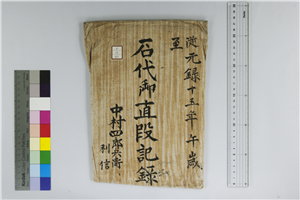 従元禄十五年午歳
至
石代御直段記録
中村四郎兵衛
利信